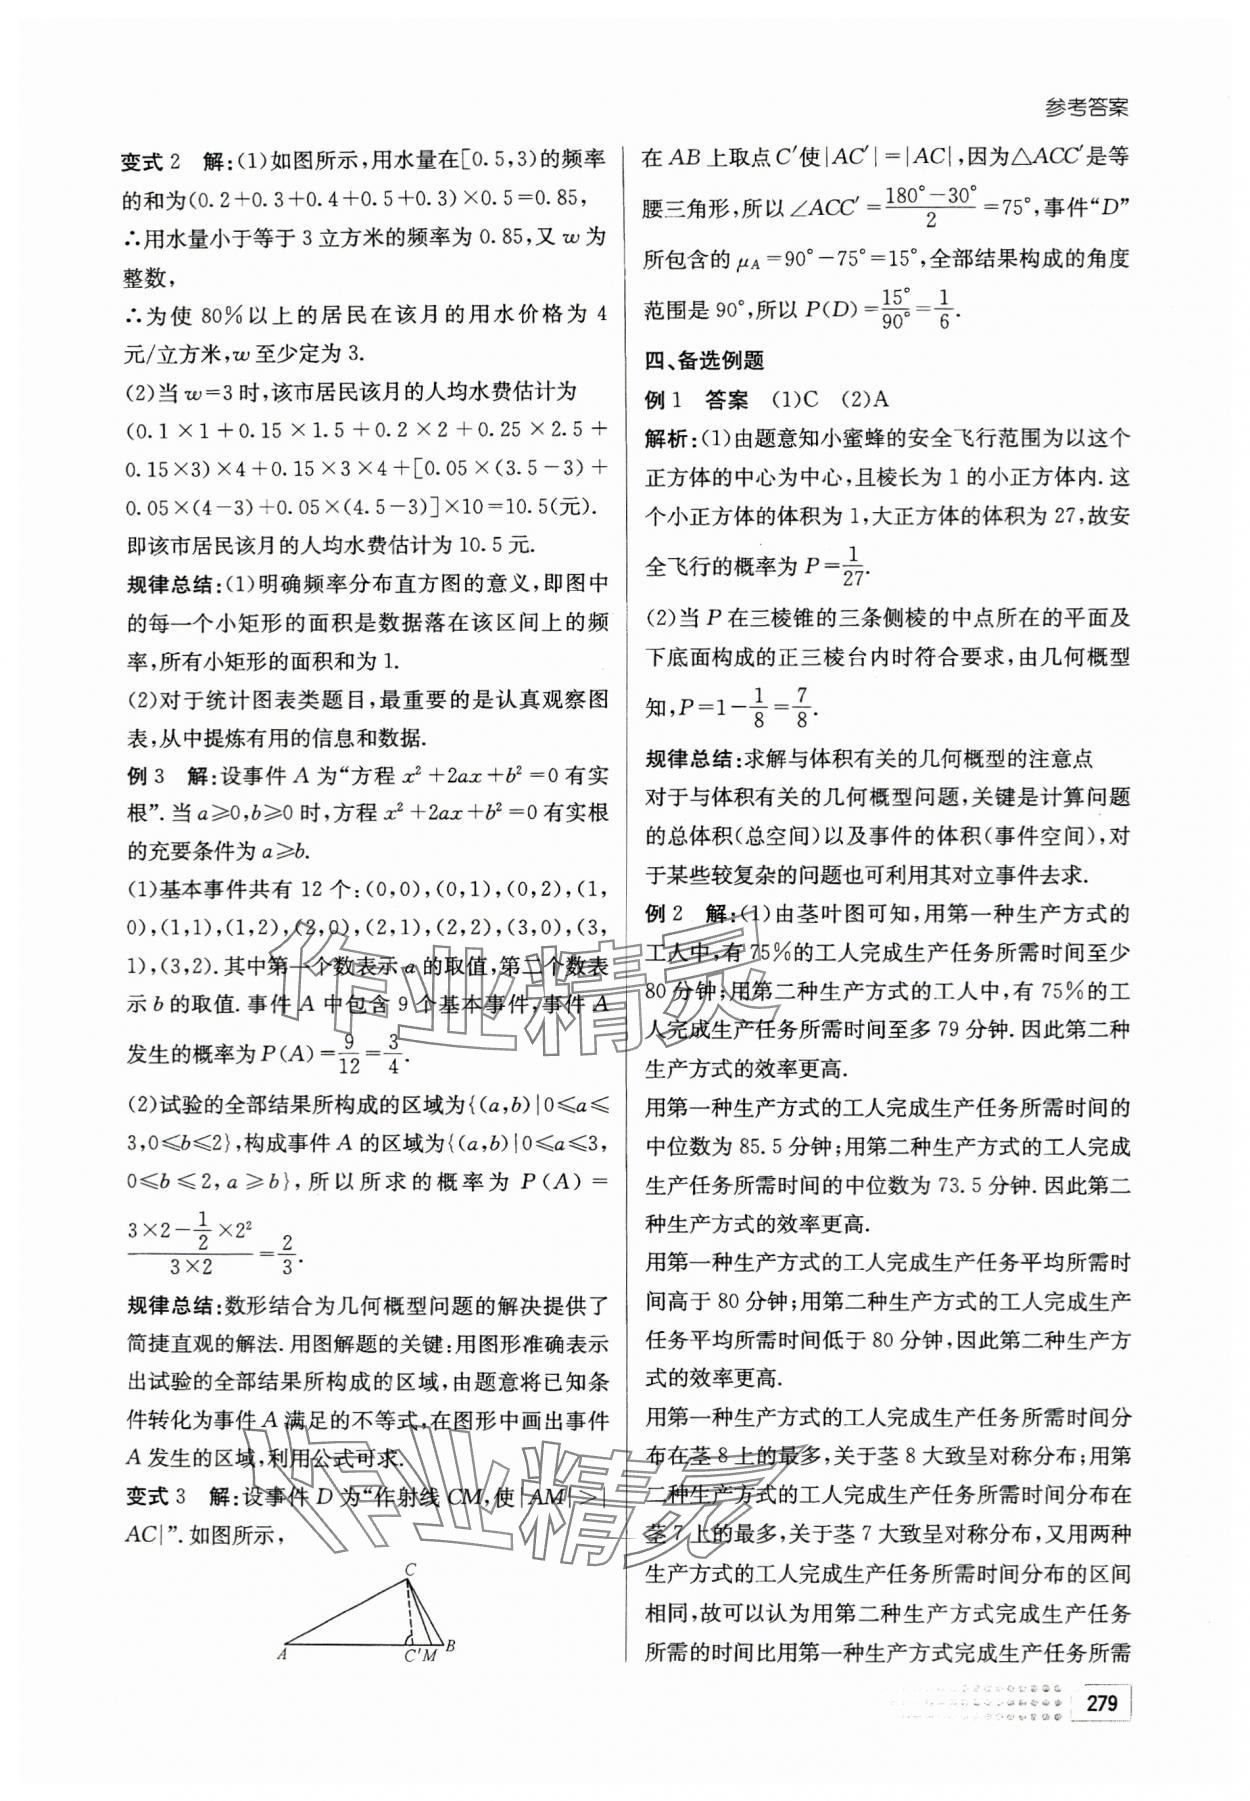 参考答案
变式2 解:(1)如图所示,用水量在[0.5,3)的频率
的和为(0.2+0.3+0.4+0.5+0.3)×0.5=0.85,
∴用水量小于等于3立方米的频率为0.85,又w为
整数,
∴为使80%以上的居民在该月的用水价格为4
元/立方米,w至少定为3.
(2)当w=3时,该市居民该月的人均水费估计为
(0.1×1+0.15×1.5+0.2×2+0.25×2.5+
0.15×3)×4+0.15×3×4+[0.05×(3.5-3)+
0.05×(4-3)+0.05×(4.5-3)]×10=10.5(元).
即该市居民该月的人均水费估计为10.5元.
规律总结:(1)明确频率分布直方图的意义,即图中
的每一个小矩形的面积是数据落在该区间上的频
率,所有小矩形的面积和为1.
(2)对于统计图表类题目,最重要的是认真观察图
表,从中提炼有用的信息和数据.
例3 解:设事件A为“方程x²+2ax+b²=0有实
根”.当a≥0,b≥0时,方程x²+2ax+b²=0有实根
的充要条件为a≥b.
(1)基本事件共有12个:(0,0),(0,1),(0,2),(1,
0),(1,1),(1,2),(2,0),(2,1),(2,2),(3,0),(3,
1),(3,2).其中第一个数表示a的取值,第二个数表
示b的取值.事件A中包含9个基本事件,事件A
发生的概率为P(A)=9/12=3/4.
(2)试验的全部结果所构成的区域为{(a,b)|0≤a≤
3,0≤b≤2},构成事件A的区域为{(a,b)|0≤a≤3,
0≤b≤2,a≥b},所以所求的概率为P(A)=
(3×2-1/2×2²)/(3×2)=2/3.
规律总结:数形结合为几何概型问题的解决提供了
简捷直观的解法.用图解题的关键:用图形准确表示
出试验的全部结果所构成的区域,由题意将已知条
件转化为事件A满足的不等式,在图形中画出事件
A发生的区域,利用公式可求.
变式3 解:设事件D为“作射线CM,使|AM|>|
AC|”.如图所示,
C
A C′M B
在AB上取点C′使|AC′|=|AC|,因为△ACC′是等
腰三角形,所以∠ACC′=(180°-30°)/2=75°,事件“D”
所包含的μA=90°-75°=15°,全部结果构成的角度
范围是90°,所以P(D)=15°/90°=1/6.
四、备选例题
例1 答案 (1)C (2)A
解析:(1)由题意知小蜜蜂的安全飞行范围为以这个
正方体的中心为中心,且棱长为1的小正方体内.这
个小正方体的体积为1,大正方体的体积为27,故安
全飞行的概率为P=1/27.
(2)当P在三棱锥的三条侧棱的中点所在的平面及
下底面构成的正三棱台内时符合要求,由几何概型
知,P=1-1/8=7/8.
规律总结:求解与体积有关的几何概型的注意点
对于与体积有关的几何概型问题,关键是计算问题
的总体积(总空间)以及事件的体积(事件空间),对
于某些较复杂的问题也可利用其对立事件去求.
例2 解:(1)由茎叶图可知,用第一种生产方式的
工人中,有75%的工人完成生产任务所需时间至少
80分钟;用第二种生产方式的工人中,有75%的工
人完成生产任务所需时间至多79分钟.因此第二种
生产方式的效率更高.
用第一种生产方式的工人完成生产任务所需时间的
中位数为85.5分钟;用第二种生产方式的工人完成
生产任务所需时间的中位数为73.5分钟.因此第二
种生产方式的效率更高.
用第一种生产方式的工人完成生产任务平均所需时
间高于80分钟;用第二种生产方式的工人完成生产
任务平均所需时间低于80分钟,因此第二种生产方
式的效率更高.
用第一种生产方式的工人完成生产任务所需时间分
布在茎8上的最多,关于茎8大致呈对称分布;用第
二种生产方式的工人完成生产任务所需时间分布在
茎7上的最多,关于茎7大致呈对称分布,又用两种
生产方式的工人完成生产任务所需时间分布的区间
相同,故可以认为用第二种生产方式完成生产任务
所需的时间比用第一种生产方式完成生产任务所需
279
作业精灵
作业精灵